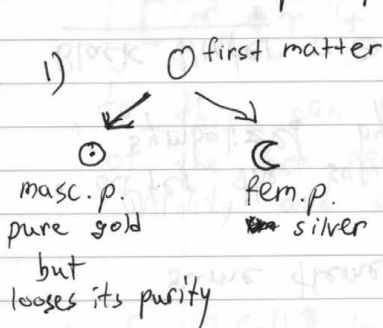 1) first matter
masc. p. fem. p.
pure gold silver
but
looses its purity